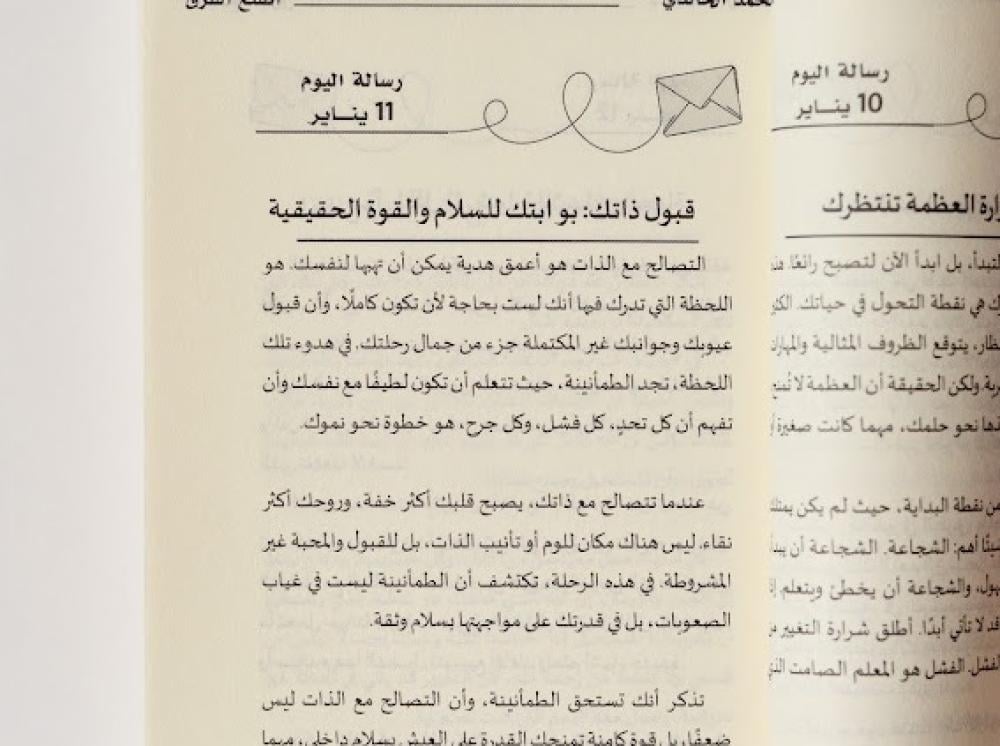 محمد الخالدي
رسالة اليوم
10 يناير
العظمة تنتظرك
بل ابدأ الآن لتصبح رائعًا.
هي نقطة التحول في حياتك.
يتوقع الظروف المثالية
ولكن الحقيقة أن العظمة لا
نحو حلمك، مهما كانت صغيرة
من نقطة البداية، حيث لم يكن
أهم: الشجاعة. الشجاعة أن
والشجاعة أن يخطئ ويتعلم
لا تأتي أبدًا. أطلق شرارة التغيير
الفشل هو المعلم الصامت
رسالة اليوم
11 يناير
قبول ذاتك: بو ابتك للسلام والقوة الحقيقية
التصالح مع الذات هو أعمق هدية يمكن أن تهبها لنفسك. هو
اللحظة التي تدرك فيها أنك لست بحاجة لأن تكون كاملًا، وأن قبول
عيوبك وجوانبك غير المكتملة جزء من جمال رحلتك. في هدوء تلك
اللحظة، تجد الطمأنينة، حيث تتعلم أن تكون لطيفًا مع نفسك وأن
تفهم أن كل تحدٍ، كل فشل، وكل جرح، هو خطوة نحو نموك.
عندما تتصالح مع ذاتك، يصبح قلبك أكثر خفة، وروحك أكثر
نقاء. ليس هناك مكان للوم أو تأنيب الذات، بل للقبول والمحبة غير
المشروطة. في هذه الرحلة، تكتشف أن الطمأنينة ليست في غياب
الصعوبات، بل في قدرتك على مواجهتها بسلام وثقة.
تذكر أنك تستحق الطمأنينة، وأن التصالح مع الذات ليس
ضعفًا، بل قوة كامنة تمنحك القدرة على العيش بسلام داخلي، مهما